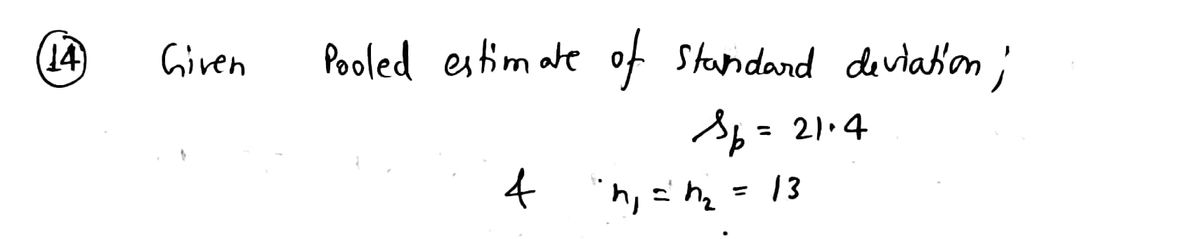 (14) Given Pooled estimate of standard deviation;
sp = 21.4
& n₁ = n₂ = 13